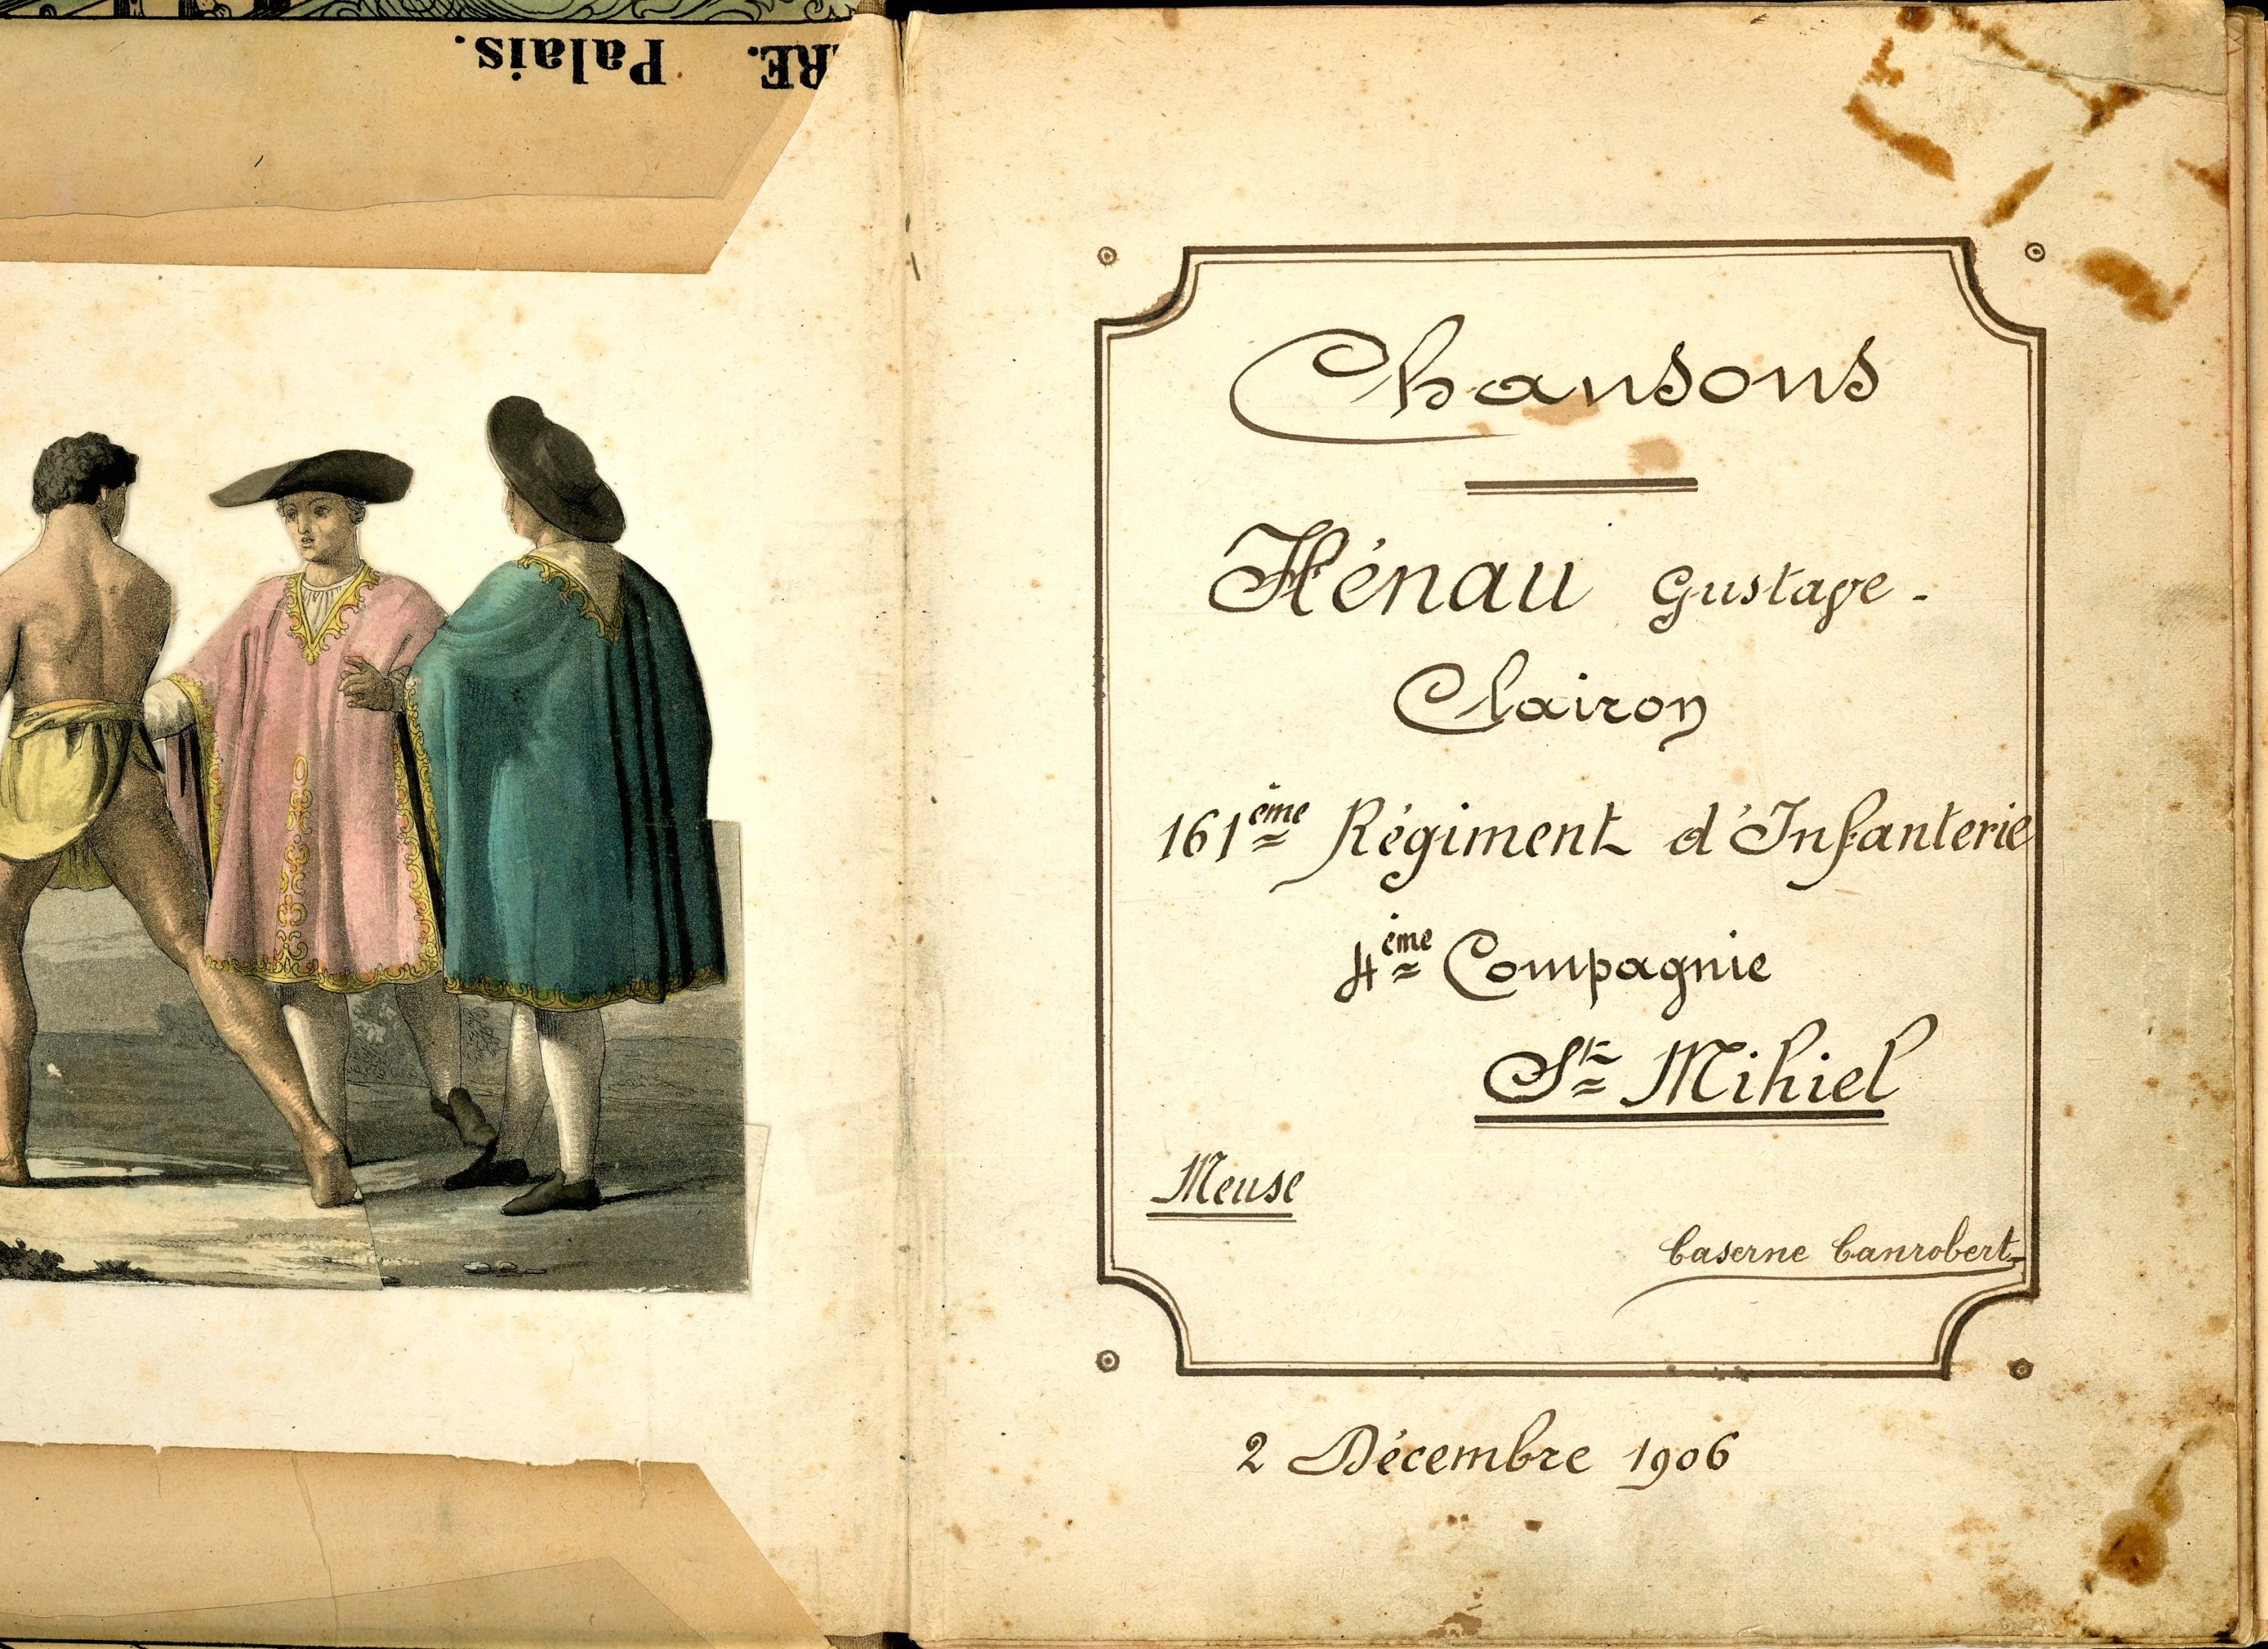 RE. Palais.
Chansons
Hénau Gustave -
Clairon
161ème Régiment d'Infanterie
4ème Compagnie
St Mihiel
Meuse
Caserne Canrobert
2 Décembre 1906